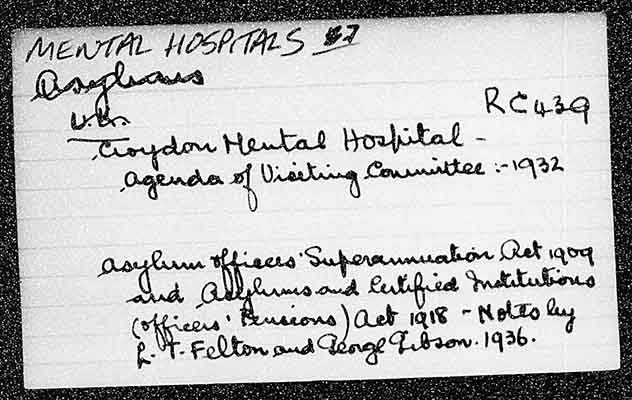 MENTAL HOSPITALS 37
Asylums
U.K.
RC439
Croydon Mental Hospital -
Agenda of Visiting Committee :- 1932
Asylum Officers' Superannuation Act 1909
and Asylums and Certified Institutions
(Officers' Pensions) Act 1918 - Notes by
L. T. Felton and George Gibson. 1936.